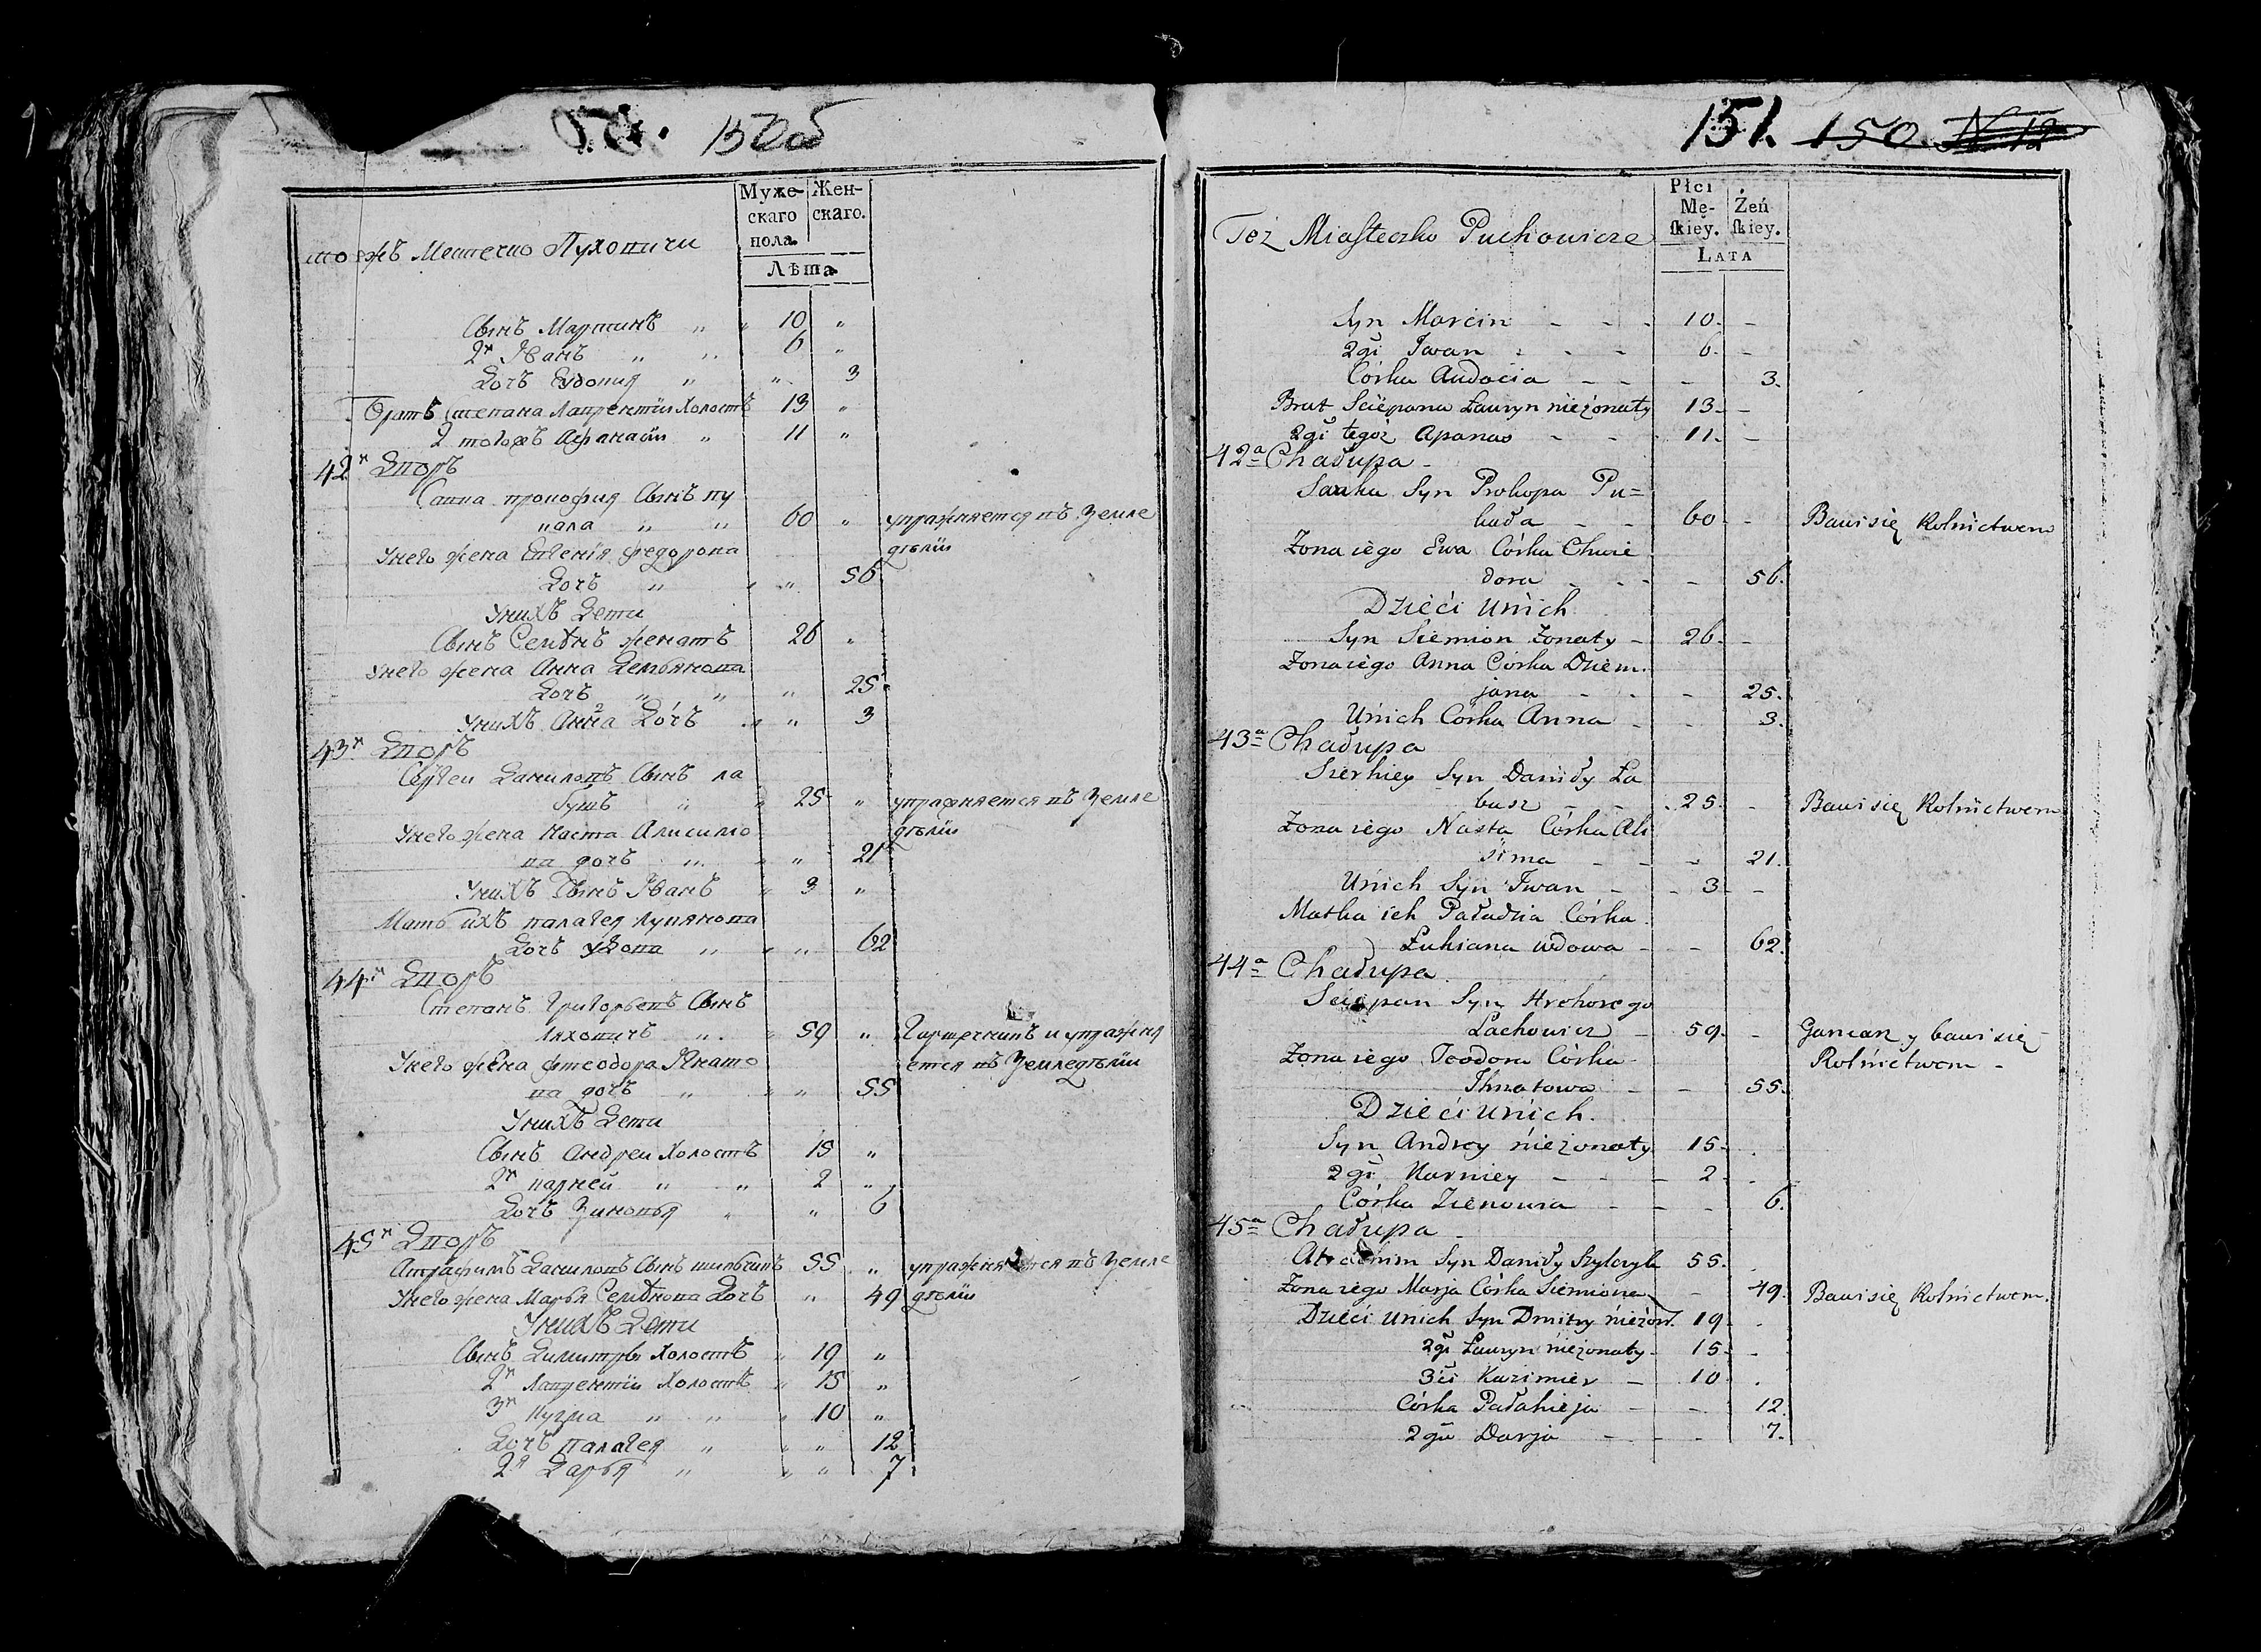 150об
Муже-
скаго
пола.
Жен-
скаго.
Лѣта
тожъ Местечко Пуховичи
Сынъ Мартинъ „ „ 10 „
2й Іванъ „ „ 6 „
Дочъ Еудокия „ „ 3
Братъ степана Лаврентіи Холостъ 13 „
2 тогожъ Афанасіи „ 11 „
42й Дворъ
Савка прокофия Сынъ пу
кала „ „ 60 „ упражняется въ Земле
Унего жена Евгенія федорова деліи
Дочъ „ „ „ 56
Унихъ Дети
Сынъ Семѣнъ женатъ 26 „
унего жена Анна Демьянова
Дочъ „ „ „ 25
Унихъ Анна Дочъ „ „ 3
43й Дворъ
Сергеи Даниловъ Сынъ ла
бушъ „ „ 25 „ упражняется въ Земле
Унего жена Наста Алисимо деліи
ва дочъ „ „ „ 21
Унихъ Сынъ Іванъ „ 3 „
Мать ихъ палагея Лукянова
Дочъ удова „ „ „ 62
44й Дворъ
Степанъ Григорьевъ Сынъ
Ляховичъ „ „ 59 „ Гартечникъ и упражня
Унего жена фтеодора Ігнато ется въ Земледеліи
ва дочъ „ „ „ 55
Унихъ Дети
Сынъ Андреи Холостъ 15 „
2й карней „ „ 2 „
Дочъ Зиновья „ „ 6
45й Дворъ
Даниловъ Сынъ 55 „ упражняется въ Земле
Унего жена Марья Семѣнова Дочъ „ 49 деліи
Унихъ Дети
Сынъ Димитрьи Холостъ „ 19 „
2й Лаврентіи Холостъ „ 15 „
3й Кузма „ „ „ 10 „
Дочъ палагея „ „ „ 12
2я Дарья „ „ „ 7
151. 150. N 12
Płci
Mę-
skiey.
Żeń
skiey.
LATA
Też Miasteczko Puchowicze
Syn Marcin - - - 10. -
2gi Iwan - - - 6. -
Córka Audocia - - - 3.
Brat Sciepana Ławryn nieżonaty 13. -
2gi tegoż Apanas - - 11. -
42a Chałupa -
Sauka Syn Prokopa Pu=
kała - - 60 - Bawi się Rolnictwem
Żona iego Ewa Córka Chwie
dora - - - 56.
Dzieci u nich
Syn Siemion żonaty - 26. -
Żona iego Anna Córka Dziem.
jana - - - 25.
U nich Córka Anna - - 3.
43a Chałupa
Sierhiey Syn Daniły Ła
busz - - 25. - Bawi się Rolnictwem
Żona iego Nasta Córka Ali
sima - - - 21.
U nich Syn Iwan - - 3 - -
Matka ich Paładzia Córka
Łukiana wdowa - - 62.
44a Chałupa
Sciepan Syn Hrehorego
Lachowicz - 59. - Garncarz y bawi się
Żona iego Teodora Córka Rolnictwem -
Ihnatowa - - 55.
Dzieci u nich.
Syn Andrey nieżonaty 15. .
2gi Karniey - - - 2 .
Córka Zienowia - - - 6.
45a Chałupa -
Syn Daniły 55. .
Żona iego Marja Córka Siemiona - 49. Bawi się Rolnictwem.
Dzieci u nich Syn Dmitry nieżon. 19 .
2gi Ławryn nieżonaty - 15. -
3ci Kazimier - 10 .
Córka Pałahieja - - 12.
2ga Darja - - - 7.